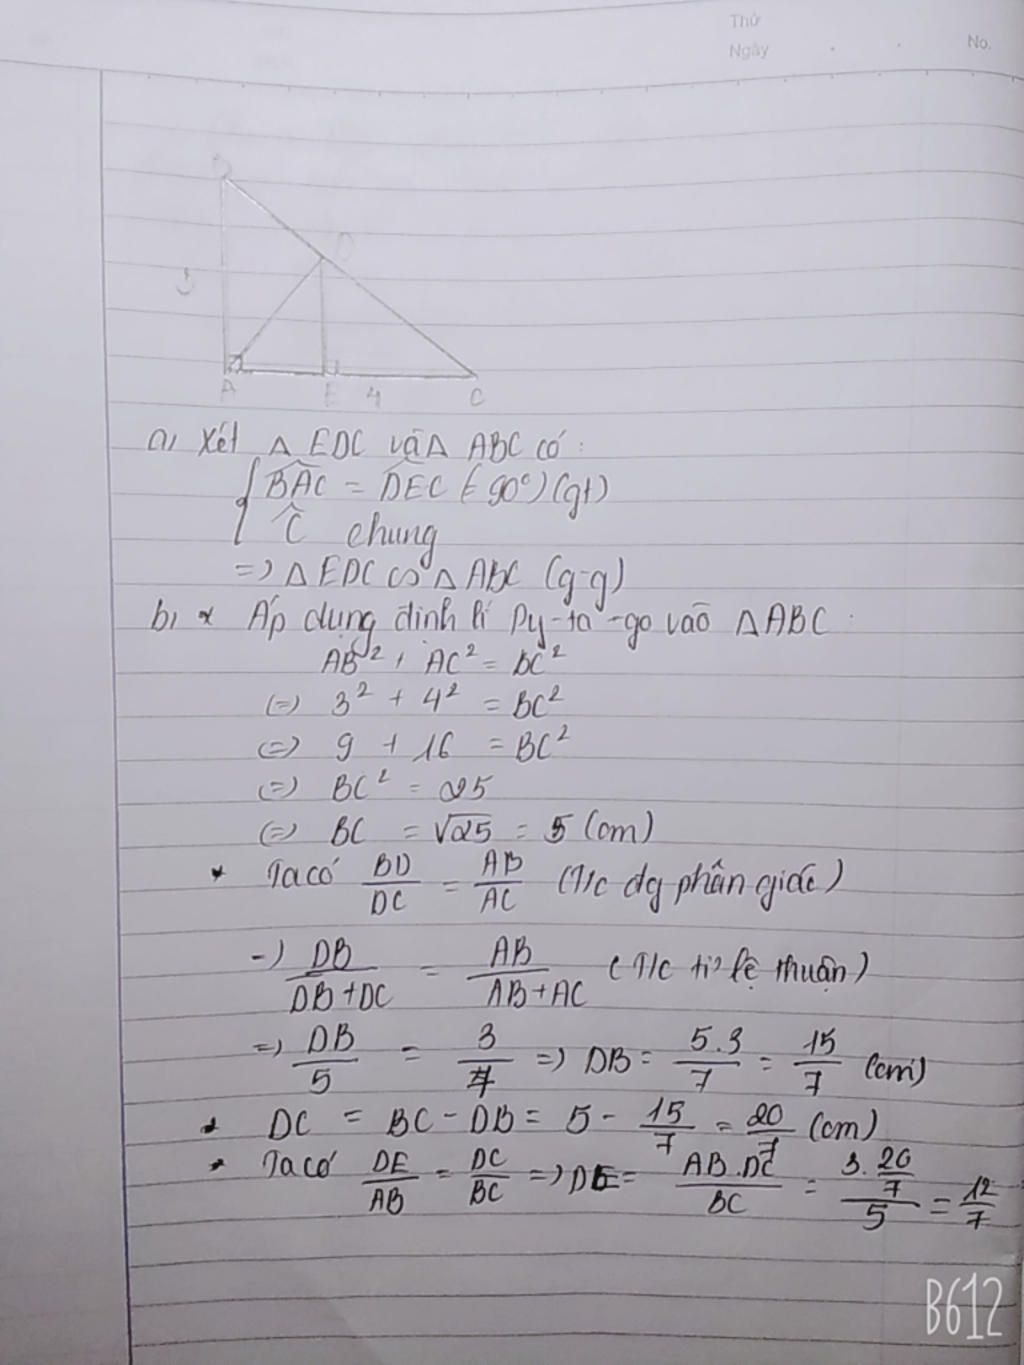 Thứ
Ngày
No.
B
D
3
A
E
4
C
a, Xét Δ EDC và Δ ABC có :
{ BAC^ = DEC^ (= 90°) (gt)
C^ chung
=> Δ EDC ∽ Δ ABC (g-g)
b, * Áp dụng định lí Py-ta-go vào ΔABC :
AB² + AC² = BC²
(=) 3² + 4² = BC²
(=) 9 + 16 = BC²
(=) BC² = 25
(=) BC = √25 = 5 (cm)
* Ta có BD/DC = AB/AC (T/c đg phân giác)
=> DB/(DB+DC) = AB/(AB+AC) (T/c tỉ lệ thuận)
=> DB/5 = 3/7 => DB = 5.3/7 = 15/7 (cm)
* DC = BC - DB = 5 - 15/7 = 20/7 (cm)
* Ta có DE/AB = DC/BC => DE = AB.DC/BC = (3.20/7)/5 = 12/7
B612